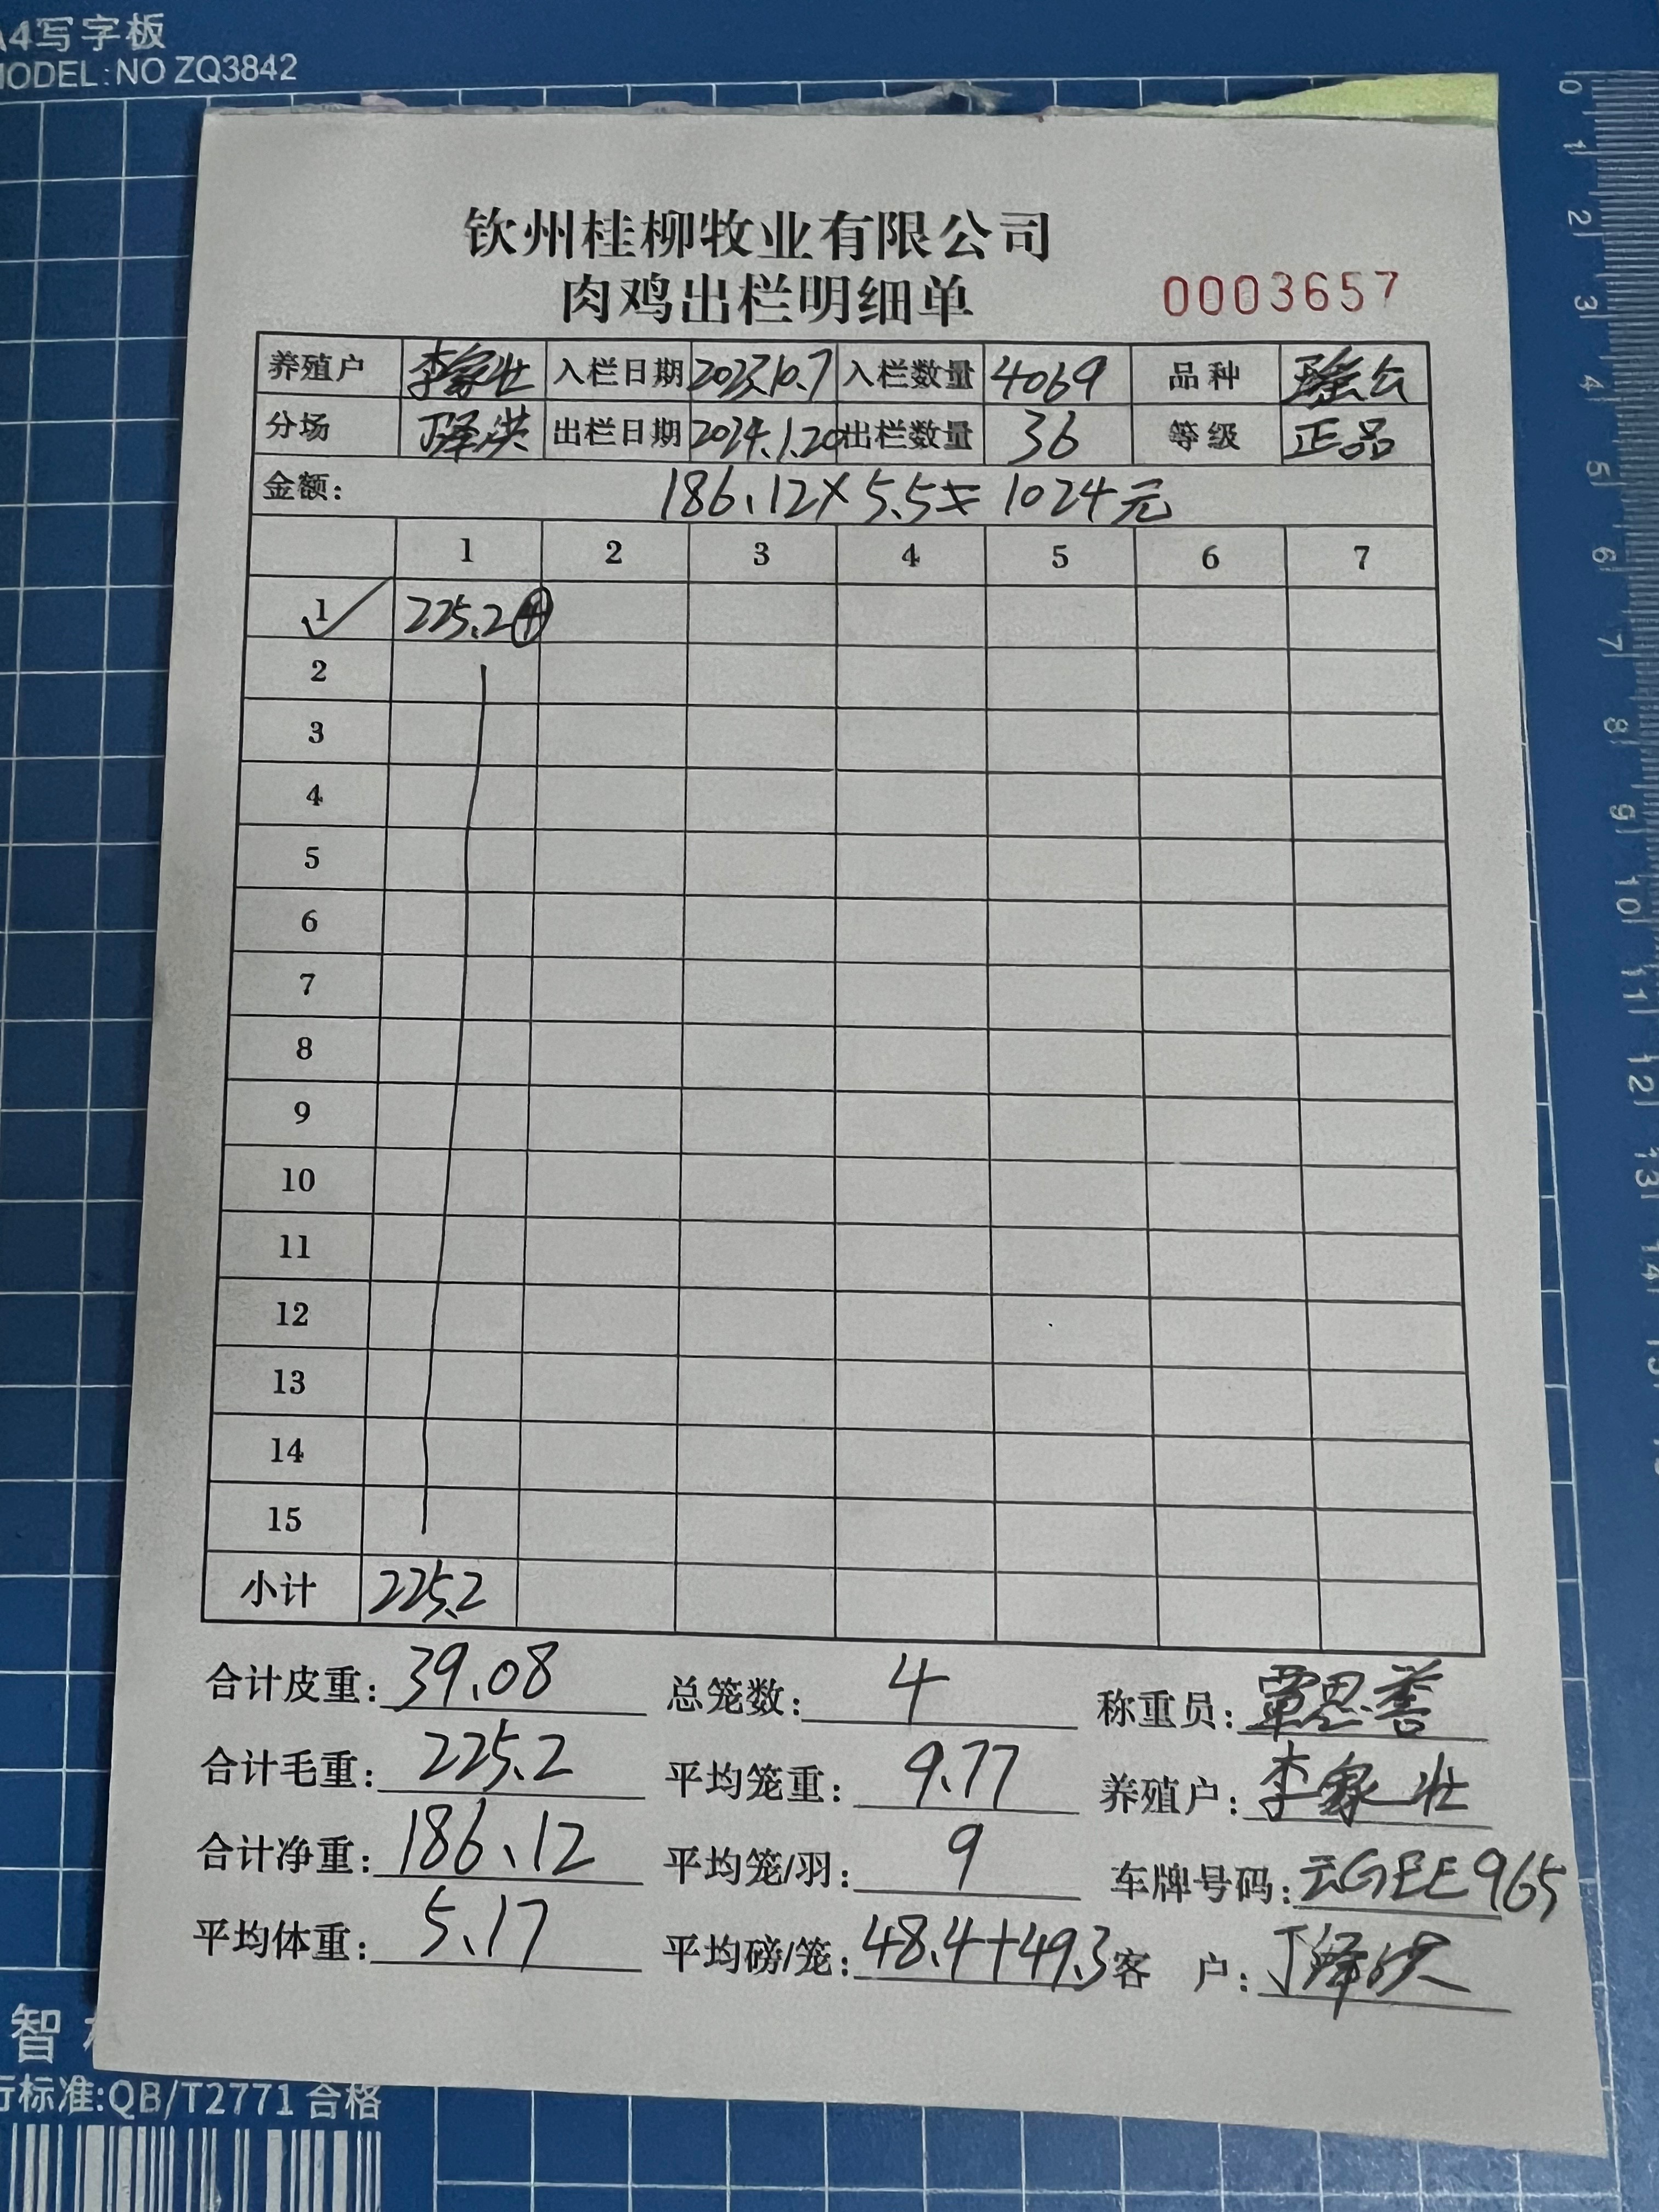 A4写字板
MODEL:NO ZQ3842
钦州桂柳牧业有限公司
肉鸡出栏明细单
0003657
养殖户 李家壮 入栏日期 2023.10.7 入栏数量 4069 品种 公
分场 丁泽洪 出栏日期 2024.1.20 出栏数量 36 等级 正品
金额: 186.12×5.5= 1024元
1 2 3 4 5 6 7
1 225.2
2
3
4
5
6
7
8
9
10
11
12
13
14
15
小计 225.2
合计皮重: 39.08 总笼数: 4 称重员: 覃思善
合计毛重: 225.2 平均笼重: 9.77 养殖户: 李家壮
合计净重: 186.12 平均笼/羽: 9 车牌号码: 云GEE965
平均体重: 5.17 平均磅/笼: 48.4+49.3 客 户: 丁泽洪
智
行标准:QB/T2771 合格
0 1 2 3 4 5 6 7 8 9 10 11 12 13 14